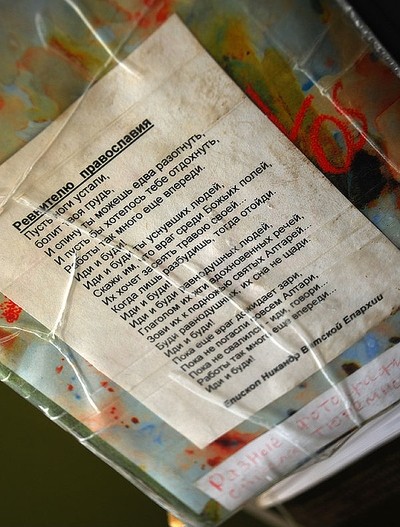 Ревнителю православия
Пусть ноги устали,
болит твоя грудь,
И спину ты можешь едва разогнуть,
И пусть бы хотелось тебе отдохнуть,
Работы так много еще впереди.
Иди и буди ты уснувших людей,
Скажи им, что враг среди Божьих полей,
Их хочет засеять травою своей...
Когда лишь разбудишь, тогда отойди.
Иди и буди равнодушных людей,
Глаголом их жги вдохновенных речей,
Зови их к подножью святых Алтарей...
Буди равнодушных, их сна не щади.
Иди и буди!
Пока еще враг дожидает зари,
Пока не погасли совсем Алтари,
Пока не свалился иди, говори...
Работы так много еще впереди...
Иди и буди!
Епископ Никандр Вятской Епархии
Разные